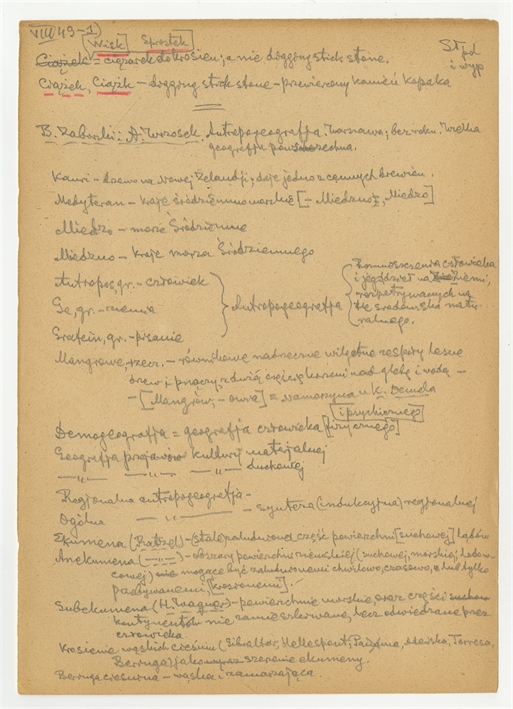 VIII/43-1)
Wisk Sprostek
Ciążek = ciężarek do krosien; a nie digging stick stone.
St. pd
i wyp
Ciążek, Ciążk – digging stick stone – przewiercony kamień kopaka
B. Zaborski: A. Wrzosek. Antropogeografja. Warszawa; bez roku. Wielka
geografja powszechna.
Kauri – drzewo na Nowej Zelandji, daje jedno z cennych drewien.
Medyteran – kraje śródziemnomorskie [– Miedzno, Miedzo]
Miedzo – morze Śródziemne
Miedzno – kraje morza Śródziemnego
Antropos, gr. – człowiek
Ge, gr. – ziemia
Gratein, gr. – pisanie
Antropogeografja
Rozmieszczenie człowieka
i jego dzieł na ziemi,
rozpatrywanych na
tle środowiska natu-
ralnego.
Mangrowe, rzecz. – równikowe nadrzeczne wilgotne zespoły leśne
drzew i pnączy, z dużą częścią korzeni nad glebą i wodą –
– [Mangrów, – owia] = Namorzyna u K. Demela
i psychicznego
Demogeografja = geografja człowieka [fizycznego]
Geografja przejawów kultury materjalnej
–"– –"– –"– duchowej
Regjonalna antropogeografja –
Ogólna –"– – syntera (indukcyjna) regjonalnej
Ekumena (Ratzel) – stale zaludniona część powierzchni [suchowej] lądów
Anekumena (–"–) – obszary powierzchni ziemskiej (suchowej, morskiej, lodow-
cowej) mogące być zaludnionemi chwilowo, czasowo, lub tylko
przebywanemi, [koszonemi].
Subekumena (H. Wagner) – powierzchnie morskie, oraz części
kontynentów nie zamieszkiwane, lecz odwiedzane przez
człowieka
Kresienie wąskich cieśnin (Gibraltar, Hellespont, Torresa,
Beringa) jakowyraz szerzenie ekumeny.
Beringa cieśnina – wąska i zamarzająca.